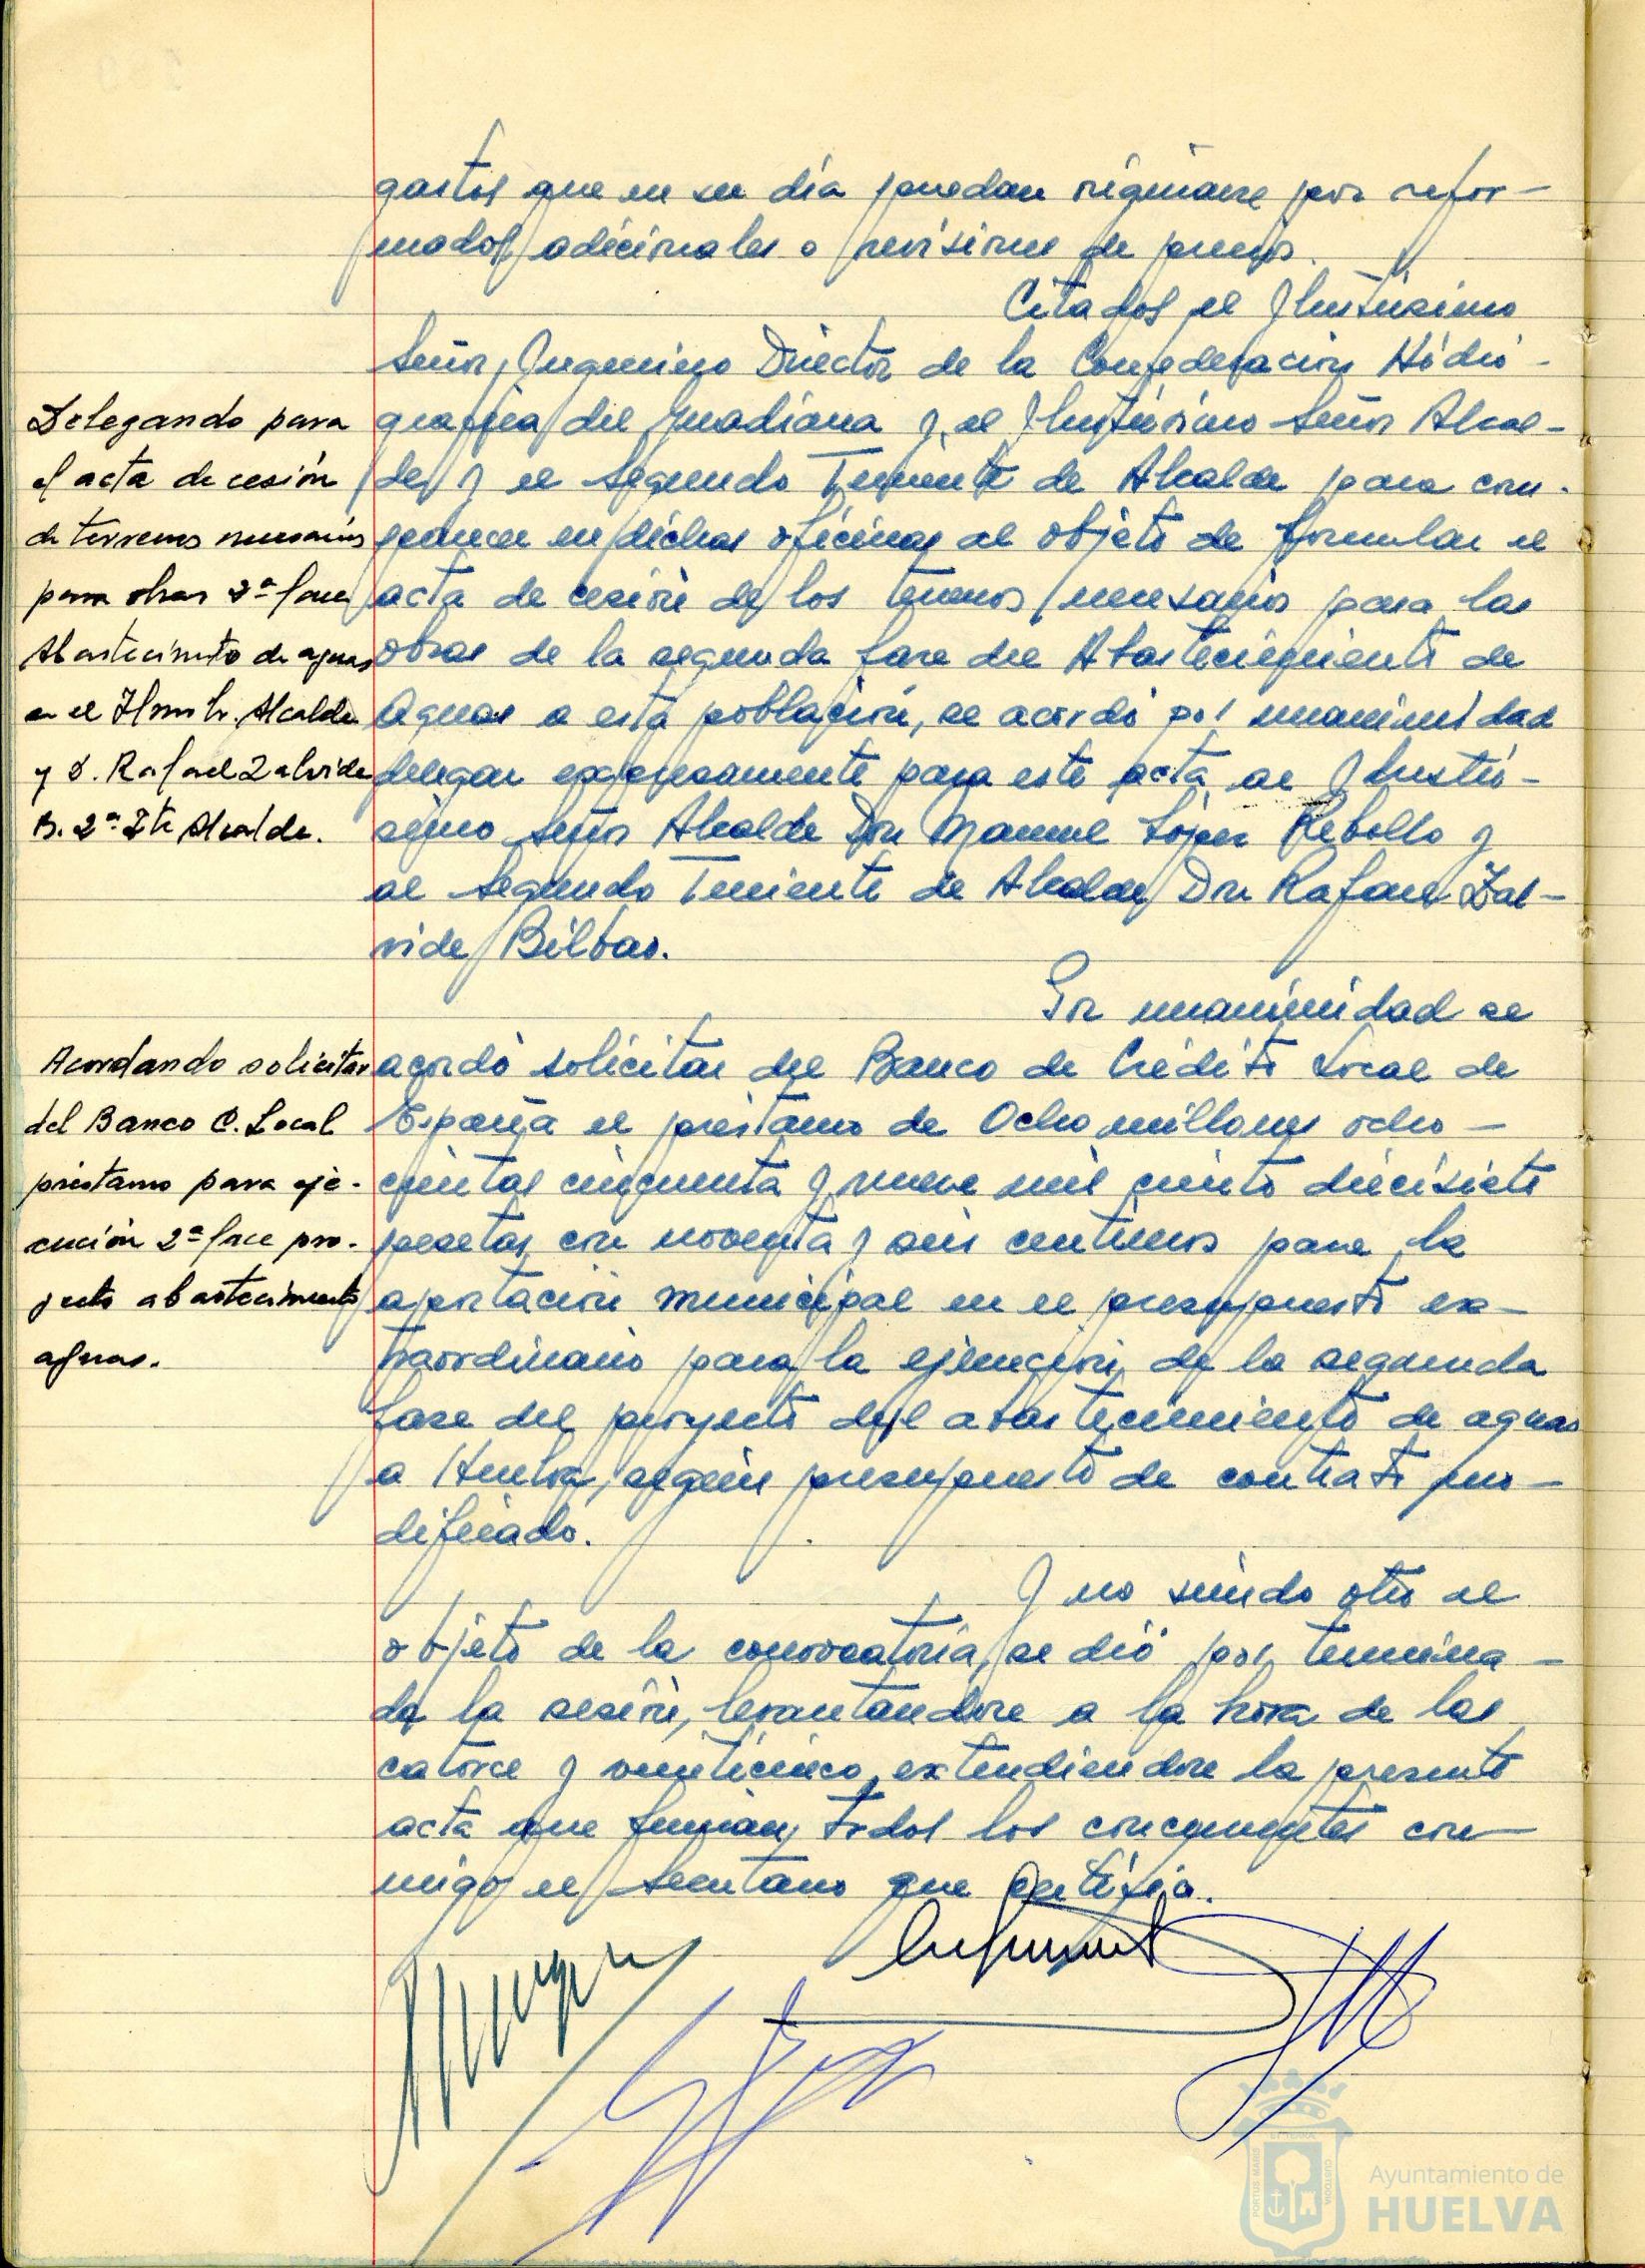 gastos que en su día puedan originarse por refor-
mados adicionales o revisiones de precios.
Citados el Ilustrísimo
Señor Ingeniero Director de la Confederación Hidro-
gráfica del Guadiana y el Ilustrísimo Señor Alcal-
de y el Segundo Teniente de Alcalde para com-
parecer en dichas oficinas al objeto de formular el
acta de cesión de los terrenos necesarios para las
obras de la segunda fase del Abastecimiento de
Aguas a esta población, se acordó por unanimidad
delegar expresamente para este acta al Ilustrí-
simo Señor Alcalde Don Manuel López Rebollo y
al Segundo Teniente de Alcalde Don Rafael Zal-
vide Bilbao.
Delegando para
el acta de cesión
de terrenos necesarios
para obras 2ª fase
Abastecimiento de aguas
en el Ilmo Sr. Alcalde
y D. Rafael Zalvide
B. 2º Tte Alcalde.
Por unanimidad se
acordó solicitar del Banco de Crédito Local de
España el préstamo de Ocho millones ocho-
cientas cincuenta y nueve mil ciento diecisiete
pesetas con noventa y seis centimos para la
aportación municipal en el presupuesto ex-
traordinario para la ejecución de la segunda
fase del proyecto del abastecimiento de aguas
a Huelva, según presupuesto de contrato mo-
dificado.
Acordando solicitar
del Banco C. Local
préstamo para eje-
cución 2ª fase pro-
yecto abastecimiento
aguas.
Y no siendo otro el
objeto de la convocatoria, se dió por termina-
da la sesión, levantandose a la hora de las
catorce y veinticinco, extendiendose la presente
acta que firman todos los concurrentes con-
migo el Secretario que certifico.
PORTUS MARIS
CUSTODIA
Ayuntamiento de
HUELVA